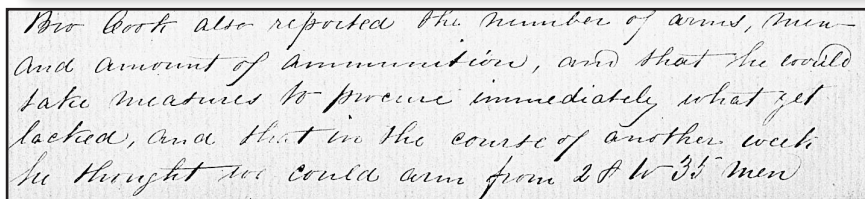 Bro Cook also reported the number of arms, men
and amount of ammunition, and that he would
take measures to procure immediately what yet
lacked, and that in the course of another week
he thought we could arm from to 35 men